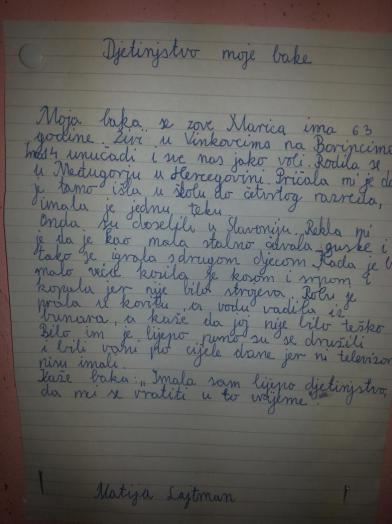 Djetinjstvo moje bake
Moja baka se zove Marica ima 63
godine. Živi u Vinkovcima na Borincima
Ima 4 unučadi i sve nas jako voli. Rodila se
u Međugorju u Hercegovini. Pričala mi je da
je tamo išla u školu do četvrtog razreda,
imala je jednu teku.
Onda su doselili u Slavoniju. Rekla mi
je da je kao mala stalno čuvala guske i
tako se igrala s drugom djecom. Kada je
malo veća kosila je kosom i srpom i
kopala jer nije bilo strojeva. Robu je
prala u koritu, a vodu vadila iz
bunara, a kaže da joj nije bilo teško
Bilo im je lijepo, puno su se družili
i bili vani po cijele dane jer ni televizor
nisu imali.
Kaže baka: „Imala sam lijepo djetinjstvo,
da mi se vratiti u to vrijeme“.
Matija Lajtman